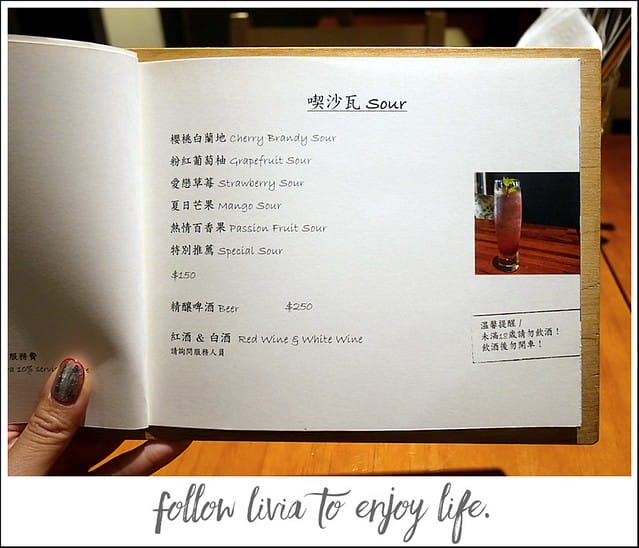 喫沙瓦 Sour
櫻桃白蘭地 Cherry Brandy Sour
粉紅葡萄柚 Grapefruit Sour
愛戀草莓 Strawberry Sour
夏日芒果 Mango Sour
熱情百香果 Passion Fruit Sour
特別推薦 Special Sour
$150
精釀啤酒 Beer $250
紅酒 & 白酒 Red Wine & White Wine
請詢問服務人員
溫馨提醒/
未滿18歲請勿飲酒！
飲酒後勿開車！
服務費
10% servi
follow livia to enjoy life.